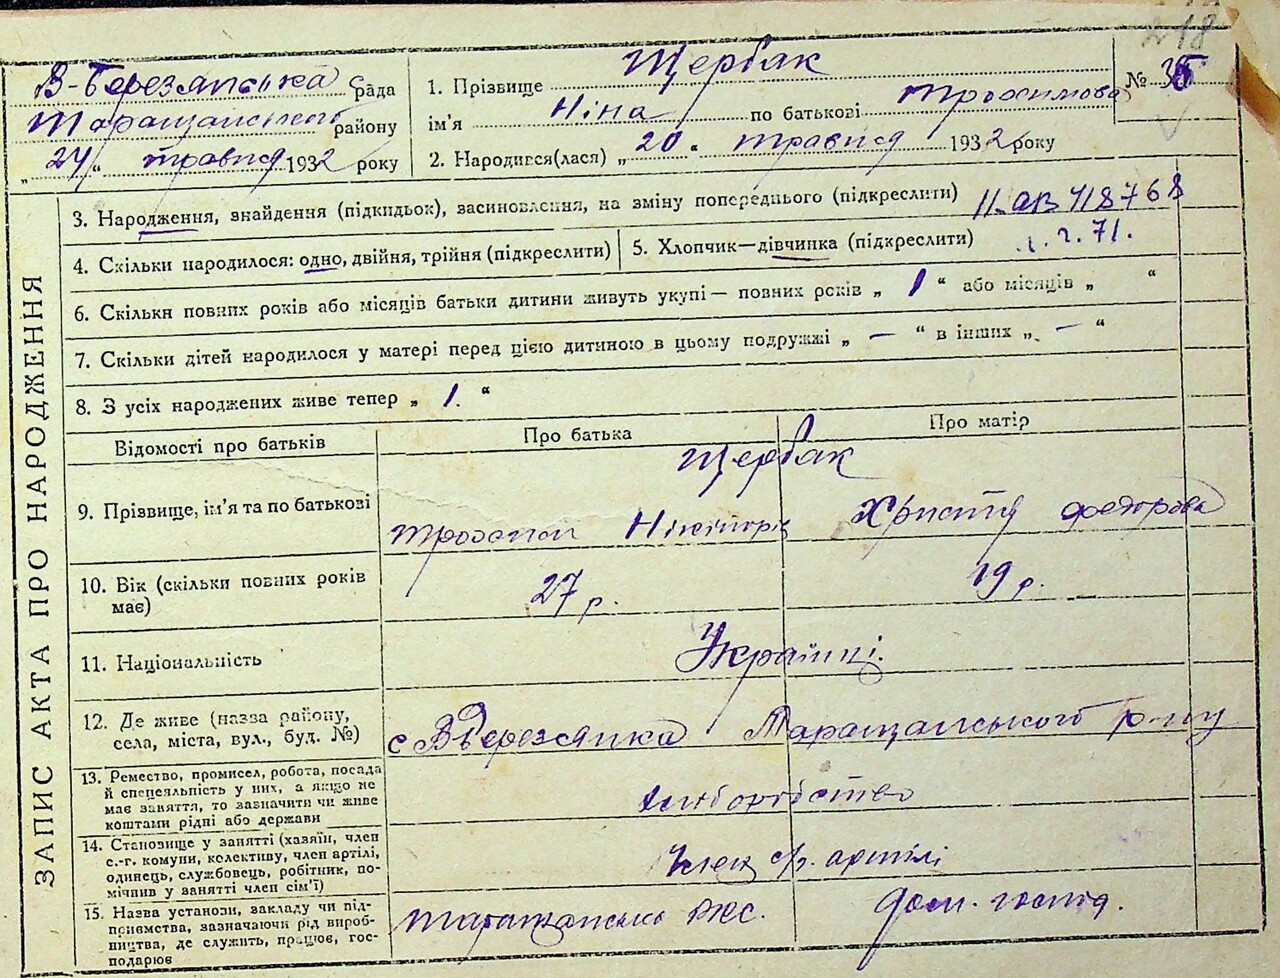 218
В-Березянська Рада
Таращанського району
„ 24 “ травня 1932 року
1. Прізвище Щербак
ім'я Ніна по батькові Трохимова
2. Народився(лася) „ 20 “ травня 1932 року
№ 35
ЗАПИС АКТА ПРО НАРОДЖЕННЯ
3. Народження, знайдення (підкидьок), засиновлення, на зміну попереднього (підкреслити) 418768
4. Скільки народилося: одно, двійня, трійня (підкреслити)
5. Хлопчик—дівчинка (підкреслити) 71.
6. Скільки повних років або місяців батьки дитини живуть укупі — повних років „ 1 “ або місяців „ “
7. Скільки дітей народилося у матері перед цією дитиною в цьому подружжі „ — “ в інших „ — “
8. З усіх народжених живе тепер „ 1. “
Відомості про батьків
Про батька
Про матір
9. Прізвище, ім'я та по батькові
Щербак
Трохим Нікіпорів
Христя Федорова
10. Вік (скільки повних років
має)
27 р.
19 р.
11. Національність
Українці.
12. Де живе (назва району,
села, міста, вул., буд. №)
с ВБерезянка Таращанського р-ну
13. Ремество, промисел, робота, посада
й спецеяльність у них, а якщо не
має заняття, то зазначити чи живе
коштами рідні або держави
хліборобство
14. Становище у занятті (хазяїн, член
с.-г. комуни, колективу, член артілі,
одинець, службовець, робітник, по-
мічник у занятті член сім'ї)
член с/г. артілі
15. Назва установи, закладу чи під-
приємства, зазначаючи рід вироб-
ництва, де служить, працює, гос-
подарює
Таращансько
дом. господ.